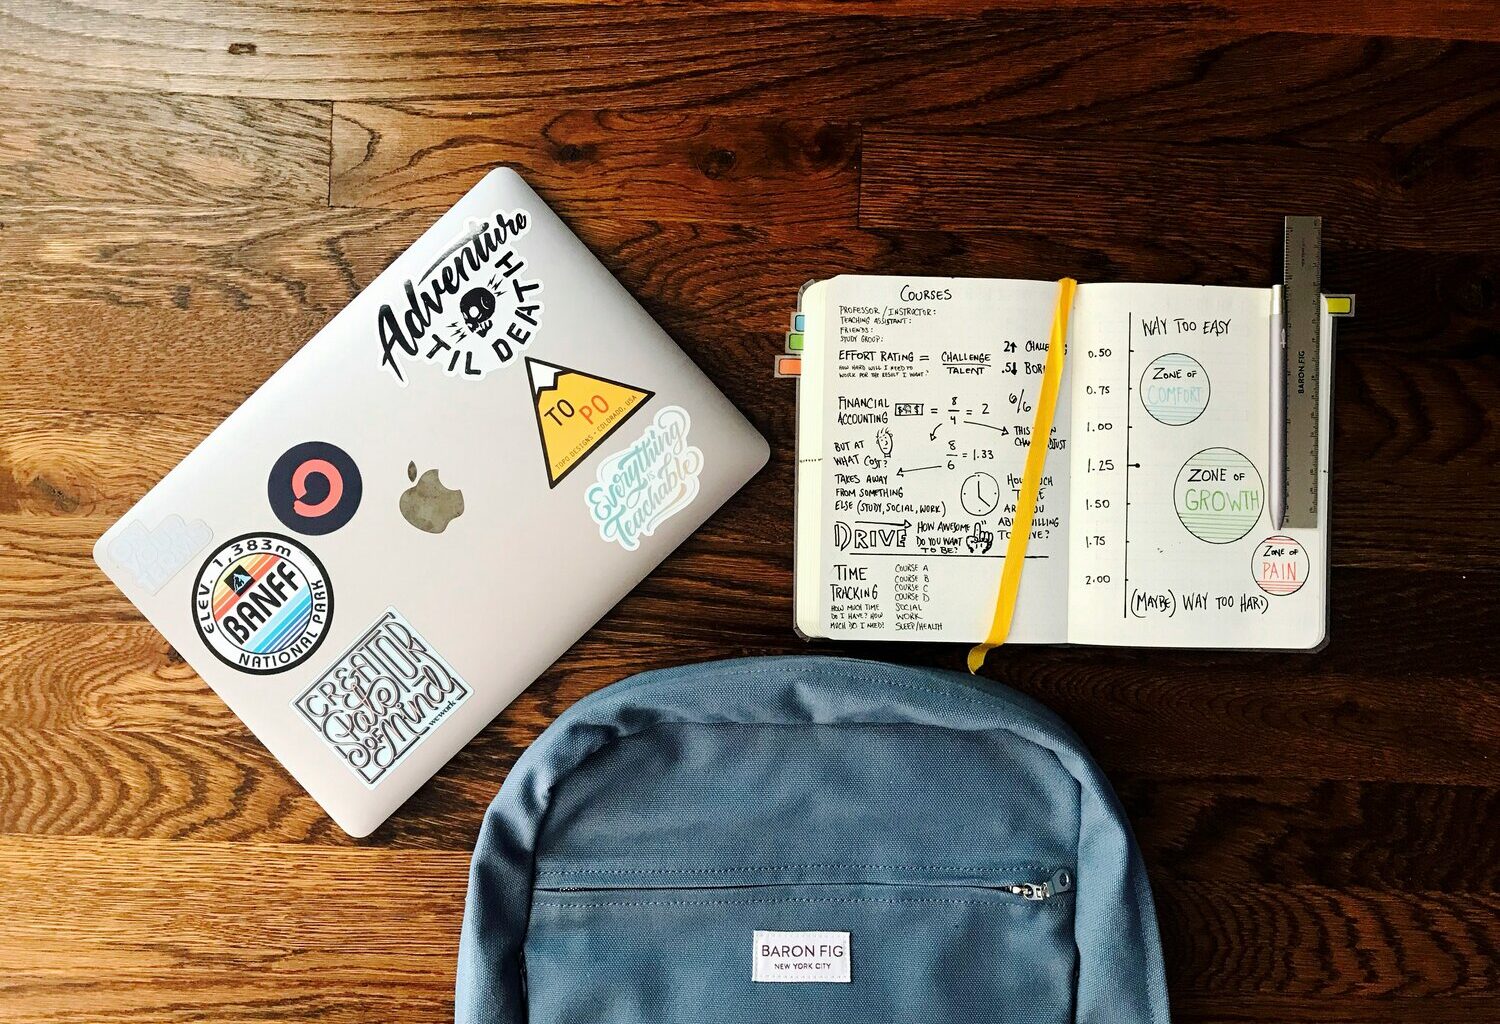 Adventure
TIL DEATH
TO PO
TOPO DESIGNS • COLORADO, USA
Everything
is
Teachable
ELEV. 1,383m
BANFF
NATIONAL PARK
CREATOR
State
OF Mind
wework
COURSES
PROFESSOR / INSTRUCTOR:
TEACHING ASSISTANT:
FRIENDS:
STUDY GROUP:
EFFORT RATING = CHALLENGE
TALENT
HOW HARD WILL I NEED TO
WORK FOR THE RESULT I WANT?
2↑
.5↓
FINANCIAL
ACCOUNTING
= 8/4 = 2
6/6
8/6 = 1.33
BUT AT
WHAT COST?
TAKES AWAY
FROM SOMETHING
ELSE (STUDY, SOCIAL, WORK)
DRIVE
HOW AWESOME
DO YOU WANT
TO BE?
TIME
TRACKING
HOW MUCH TIME
DO I HAVE? HOW
MUCH DO I NEED?
COURSE A
COURSE B
COURSE C
COURSE D
SOCIAL
WORK
SLEEP/HEALTH
WAY TOO EASY
0.50
ZONE OF
COMFORT
0.75
1.00
1.25
ZONE OF
GROWTH
1.50
1.75
ZONE OF
PAIN
2.00
(MAYBE) WAY TOO HARD
BARON FIG
BARON FIG
NEW YORK CITY